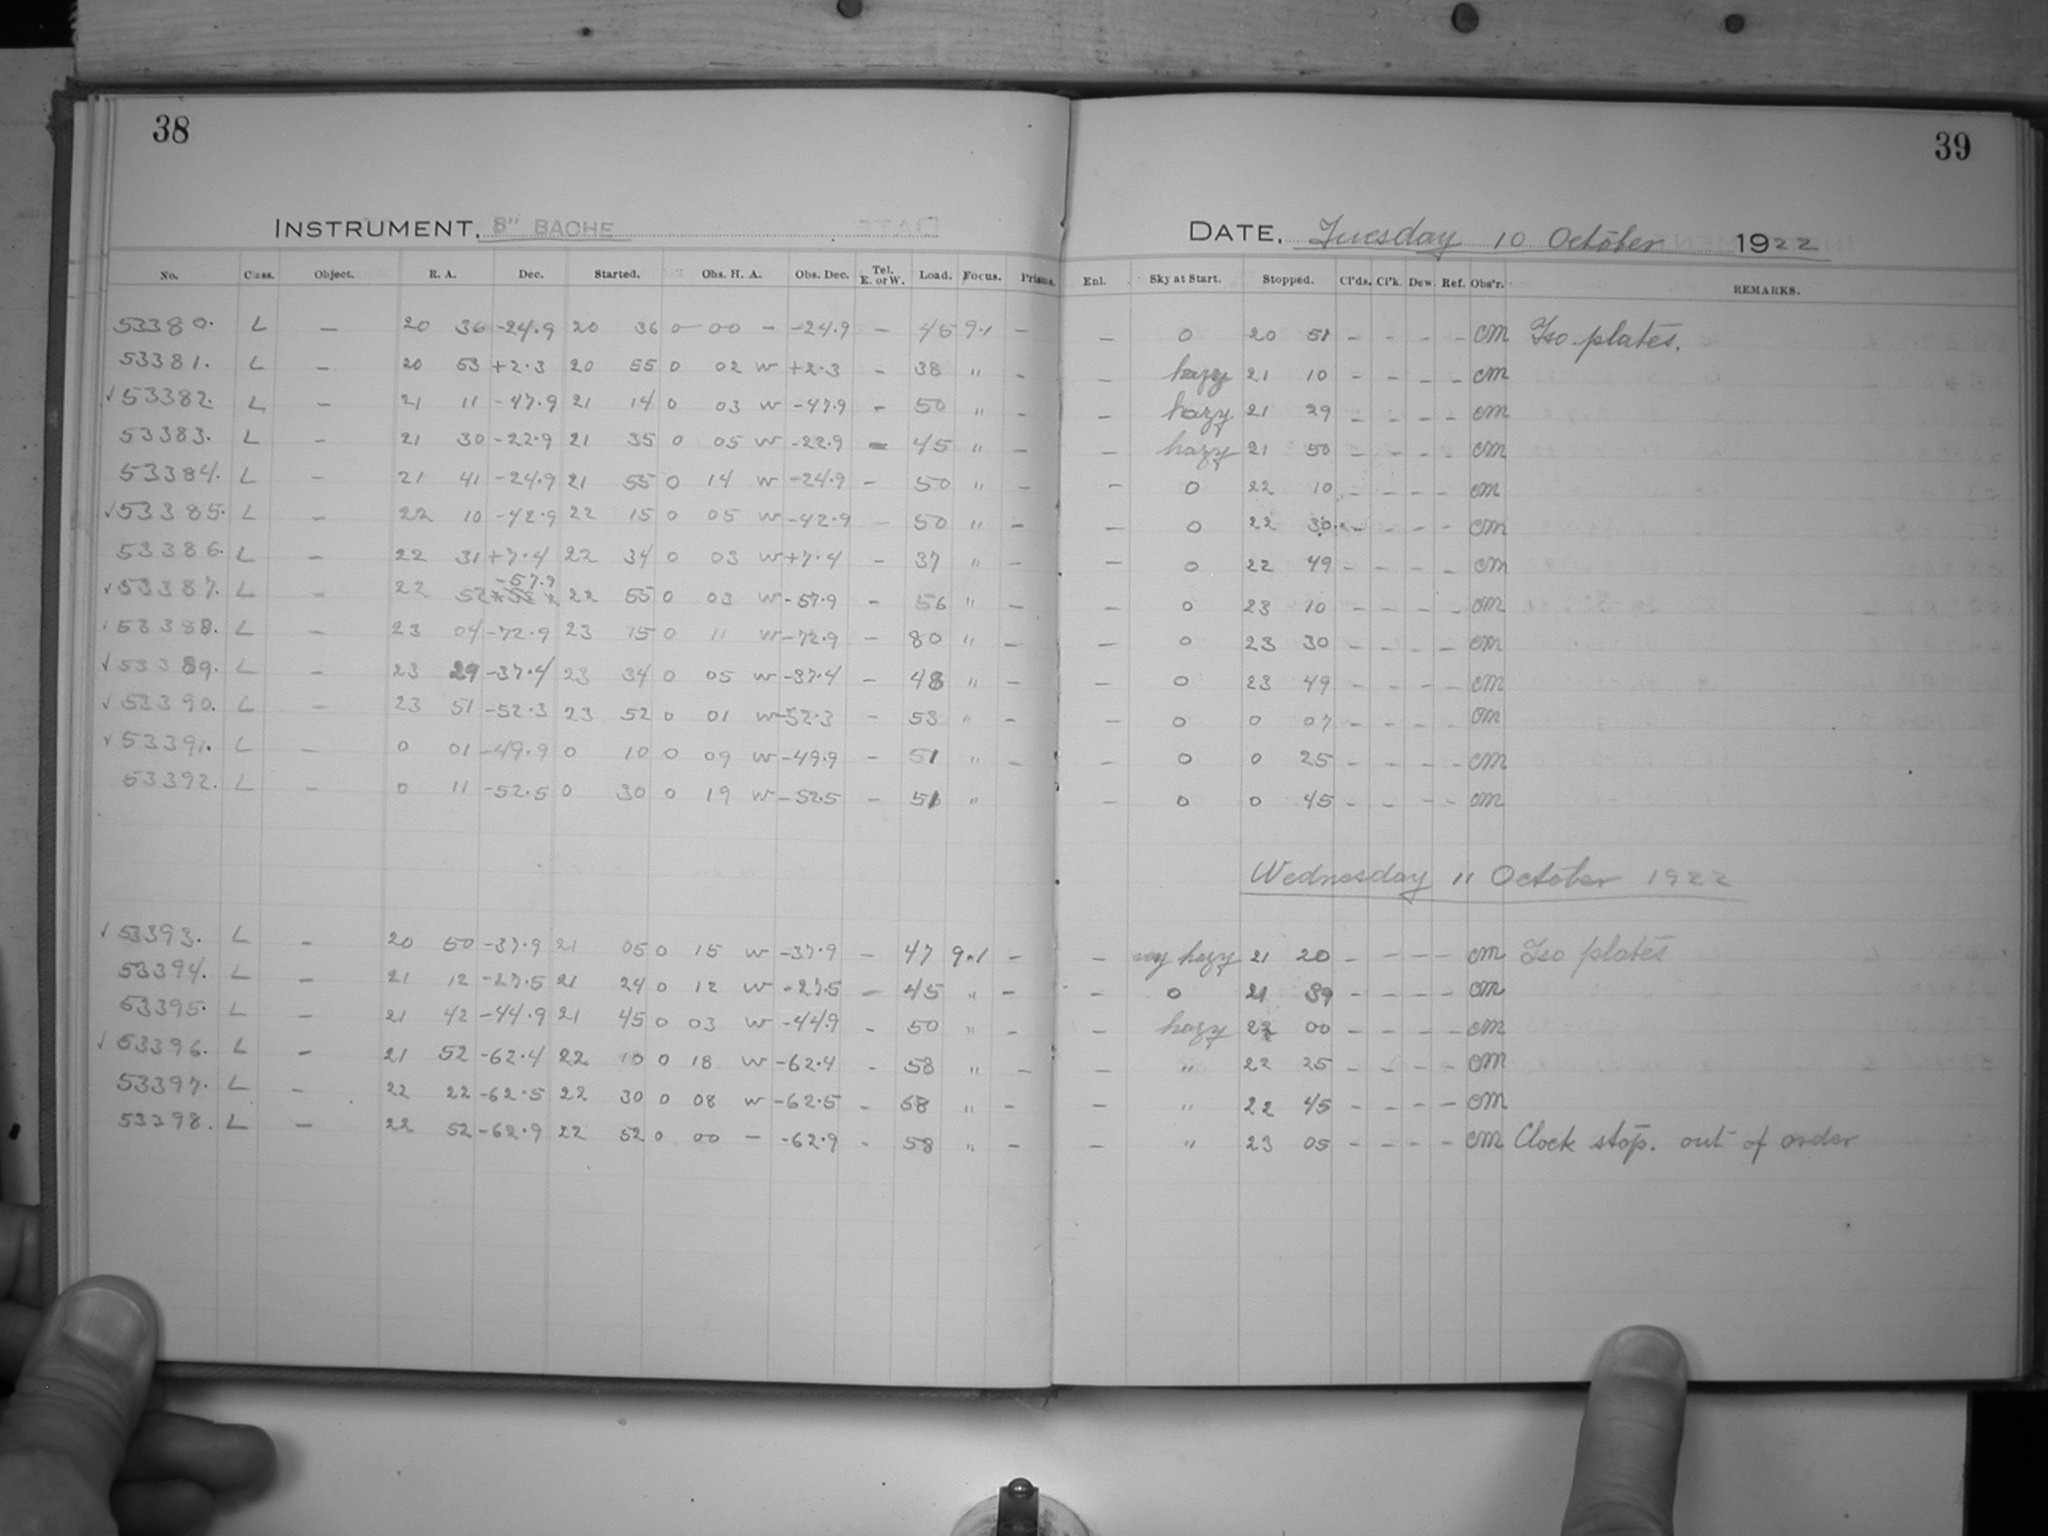 38
39
INSTRUMENT, 8" BACHE
DATE, Tuesday 10 October 1922
No. Class. Object. R. A. Dec. Started. Obs. H. A. Obs. Dec. Tel. E. or W. Load. Focus. Prisms. Enl. Sky at Start. Stopped. Cl'ds. Cl'k. Dew. Ref. Obs'r. REMARKS.
53380. L — 20 36 -24.9 20 36 0 00 - -24.9 - 45 9.1 - - 0 20 51 - - - - cm Iso plates.
53381. L - 20 53 +2.3 20 55 0 02 w +2.3 - 38 " - - hazy 21 10 - - - - cm
√53382. L - 21 11 -47.9 21 14 0 03 w -47.9 - 50 " - - hazy 21 29 - - - - cm
53383. L - 21 30 -22.9 21 35 0 05 w -22.9 - 45 " - - hazy 21 50 - - - - cm
53384. L - 21 41 -24.9 21 55 0 14 w -24.9 - 50 " - - 0 22 10 - - - - cm
√53385. L - 22 10 -42.9 22 15 0 05 w -42.9 - 50 " - - 0 22 30 - - - - cm
53386. L - 22 31 +7.4 22 34 0 03 w +7.4 - 37 " - - 0 22 49 - - - - cm
√53387. L - 22 52 -57.9 22 55 0 03 w -57.9 - 56 " - - 0 23 10 - - - - cm
53388. L - 23 04 -72.9 23 15 0 11 w -72.9 - 80 " - - 0 23 30 - - - - cm
√53389. L - 23 29 -37.4 23 34 0 05 w -37.4 - 48 " - - 0 23 49 - - - - cm
√53390. L - 23 51 -52.3 23 52 0 01 w -52.3 - 53 " - - 0 0 07 - - - - cm
√53391. L - 0 01 -49.9 0 10 0 09 w -49.9 - 51 " - - 0 0 25 - - - - cm
53392. L - 0 11 -52.5 0 30 0 19 w -52.5 - 51 " - 0 0 45 - - - - cm
Wednesday 11 October 1922
√53393. L - 20 50 -37.9 21 05 0 15 w -37.9 - 47 9.1 - - very hazy 21 20 - - - - cm Iso plates
53394. L - 21 12 -27.5 21 24 0 12 w -27.5 - 45 " - - 0 21 39 - - - - cm
53395. L - 21 42 -44.9 21 45 0 03 w -44.9 - 50 " - - hazy 22 00 - - - - cm
√53396. L - 21 52 -62.4 22 10 0 18 w -62.4 - 58 " - - " 22 25 - - - - cm
53397. L - 22 22 -62.5 22 30 0 08 w -62.5 - 58 " - - " 22 45 - - - - cm
53398. L - 22 52 -62.9 22 52 0 00 - -62.9 - 58 " - - " 23 05 - - - - cm Clock stop. out of order